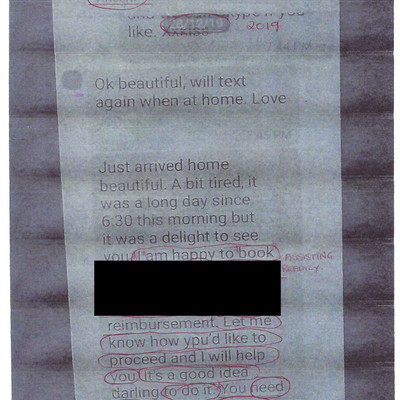 like. Xxkiss
2019
Ok beautiful, will text
again when at home. Love
Just arrived home
beautiful. A bit tired, it
was a long day since
6:30 this morning but
it was a delight to see
you I am happy to book
reimbursement. Let me
know how ypu'd like to
proceed and I will help
you. It's a good idea
darling to do it. You need